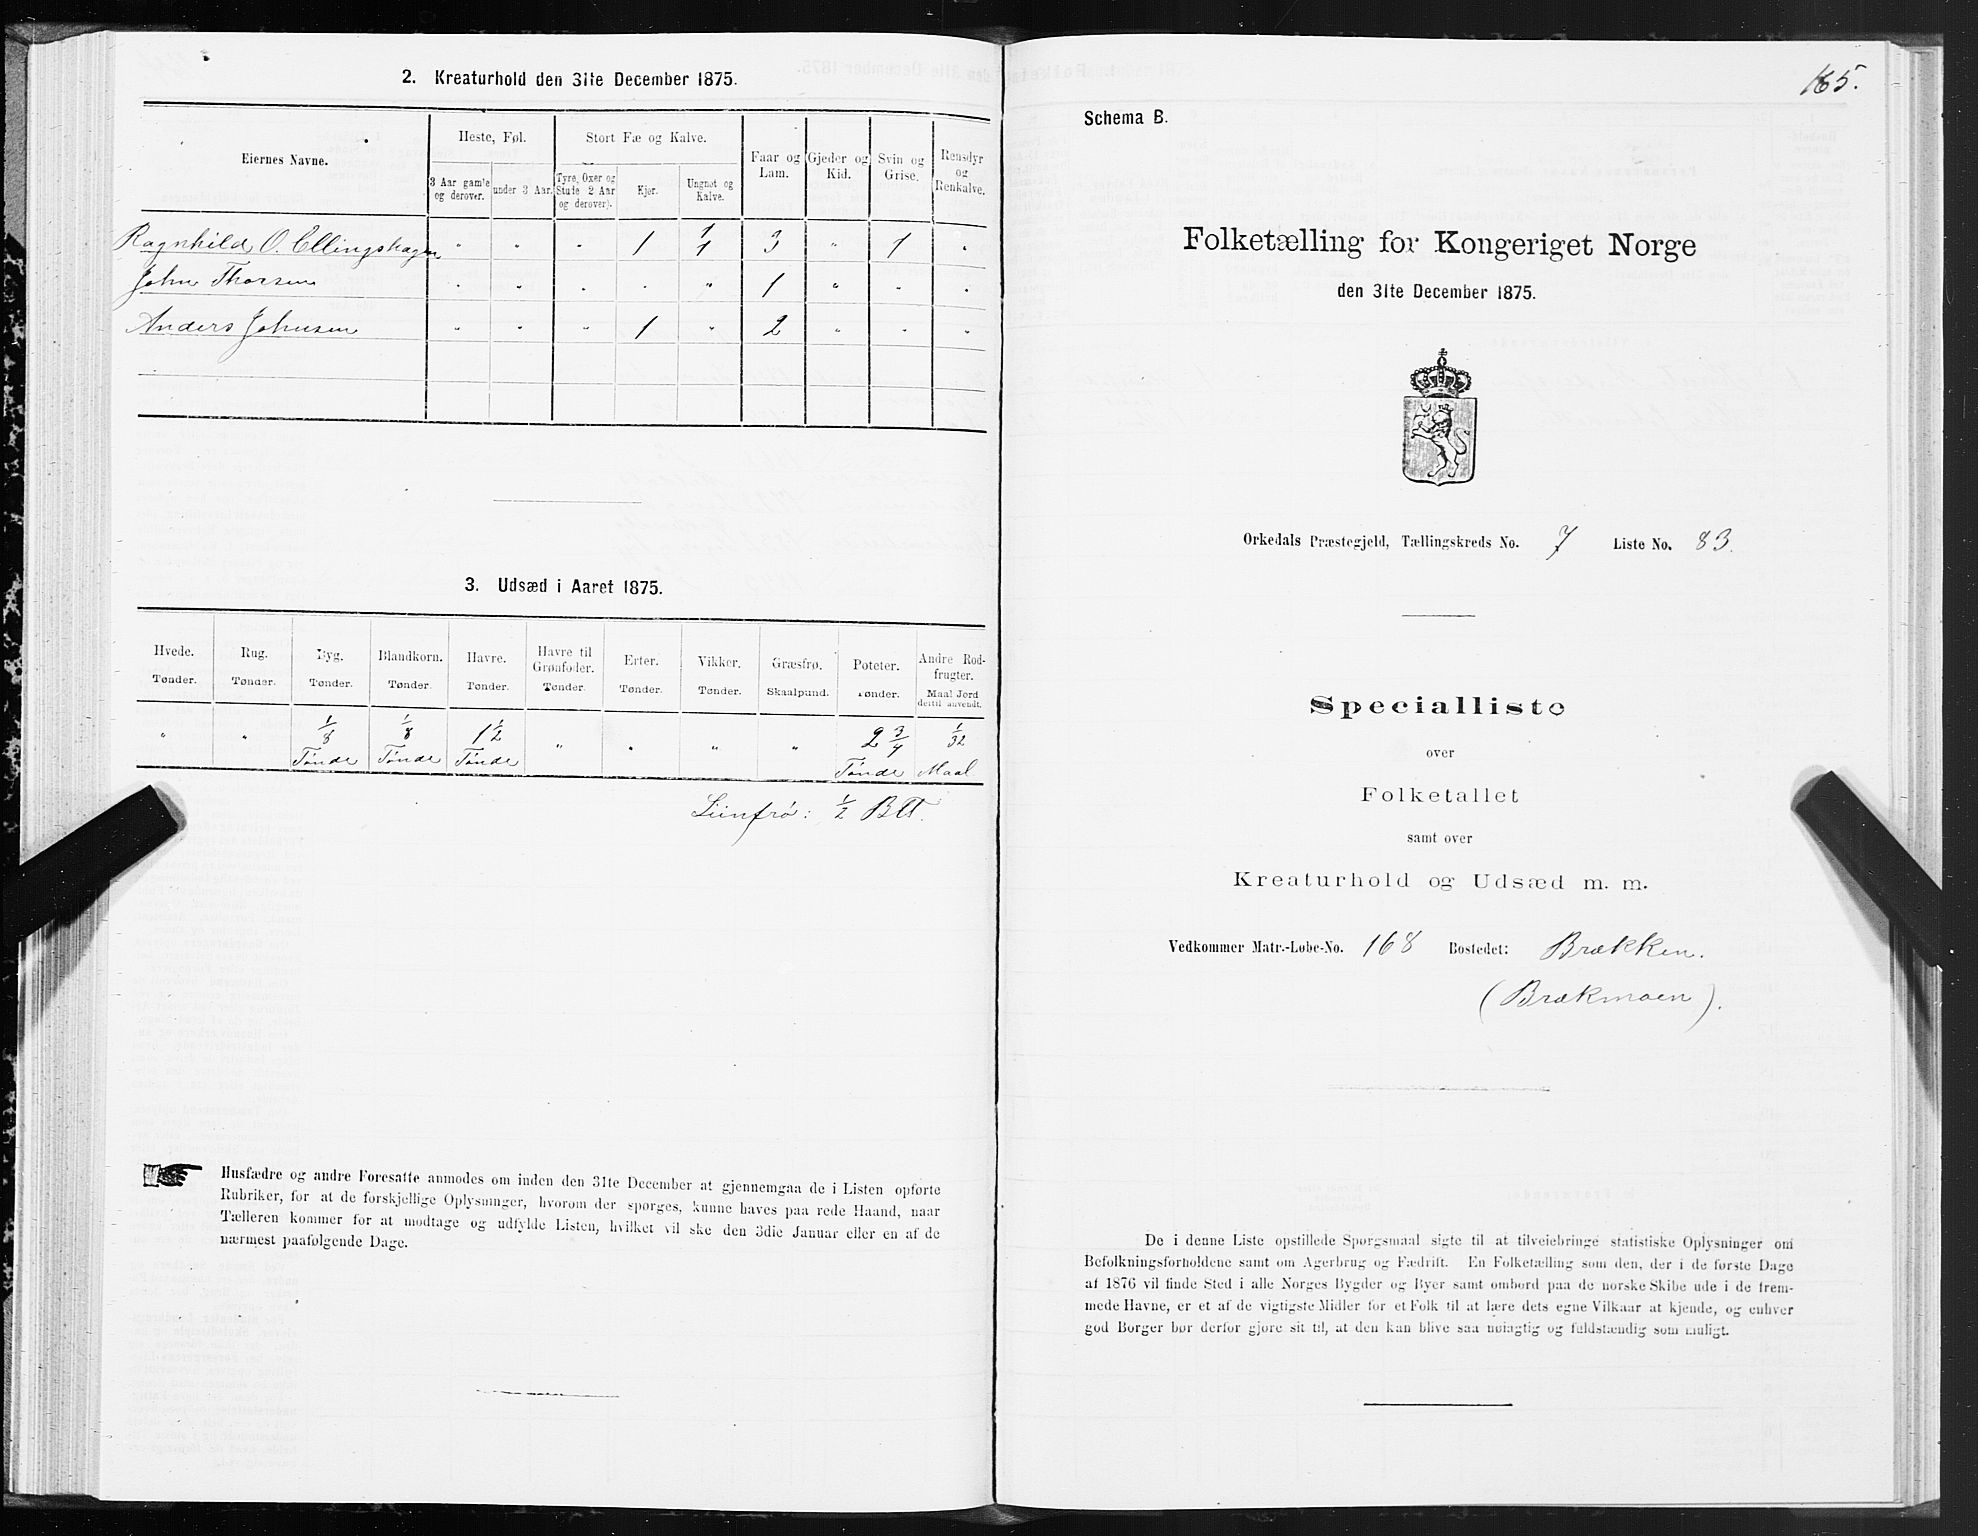 2. Kreaturhold den 31te December 1875.
Eiernes Navne.
Heste, Føl.
Stort Fæ og Kalve.
Faar og Lam.
Gjeder og Kid.
Svin og Grise.
Rensdyr og Renkalve.
3 Aar gamle og derover.
under 3 Aar.
Tyre, Oxer og Stude 2 Aar og derover).
Kjør.
Ungnøt og Kalve.
Ragnhild O. Ellingshagen " " " 1 1 3 " 1 "
John Thorsen " " " " " 1 " " "
Anders Johnsen " " " 1 " 2 " " "
3. Udsæd i Aaret 1875.
Hvede. Rug. Byg. Blandkorn. Havre. Havre til Grønfoder. Erter. Vikker. Græsfrø. Poteter. Andre Rodfrugter.
Tønder. Tønder. Tønder. Tønder. Tønder. Tønder. Tønder. Tønder. Skaalpund. Tønder. Maal Jord dertil anvendt.
" " 1/8 1/8 1 1/2 " " " " 2 3/4 1/32
Tønde Tønde Tønde Tønde Maal
Liinfrø: 1/2 Btt.
Husfædre og andre Foresatte anmodes om inden den 31te December at gjennemgaa de i Listen opførte
Rubriker, for at de forskjellige Oplysninger, hvorom der spørges, kunne haves paa rede Haand, naar
Tælleren kommer for at modtage og udfylde Listen, hvilket vil ske den 3die Januar eller en af de
nærmest paafølgende Dage.
165.
Schema B.
Folketælling for Kongeriget Norge
den 31te December 1875.
Orkedals Præstegjeld, Tællingskreds No. 7 Liste No. 83.
Specialliste
over
Folketallet
samt over
Kreaturhold og Udsæd m. m.
Vedkommer Matr.-Løbe-No. 168 Bostedet: Brækken.
(Brækmoen).
De i denne Liste opstillede Spørgsmaal sigte til at tilveiebringe statistiske Oplysninger om
Befolkningsforholdene samt om Agerbrug og Fædrift. En Folketælling som den, der i de første Dage
af 1876 vil finde Sted i alle Norges Bygder og Byer samt ombord paa de norske Skibe ude i de frem-
mede Havne, er et af de vigtigste Midler for et Folk til at lære dets egne Vilkaar at kjende, og enhver
god Borger bør derfor gjøre sit til, at den kan blive saa nøiagtig og fuldstændig som muligt.